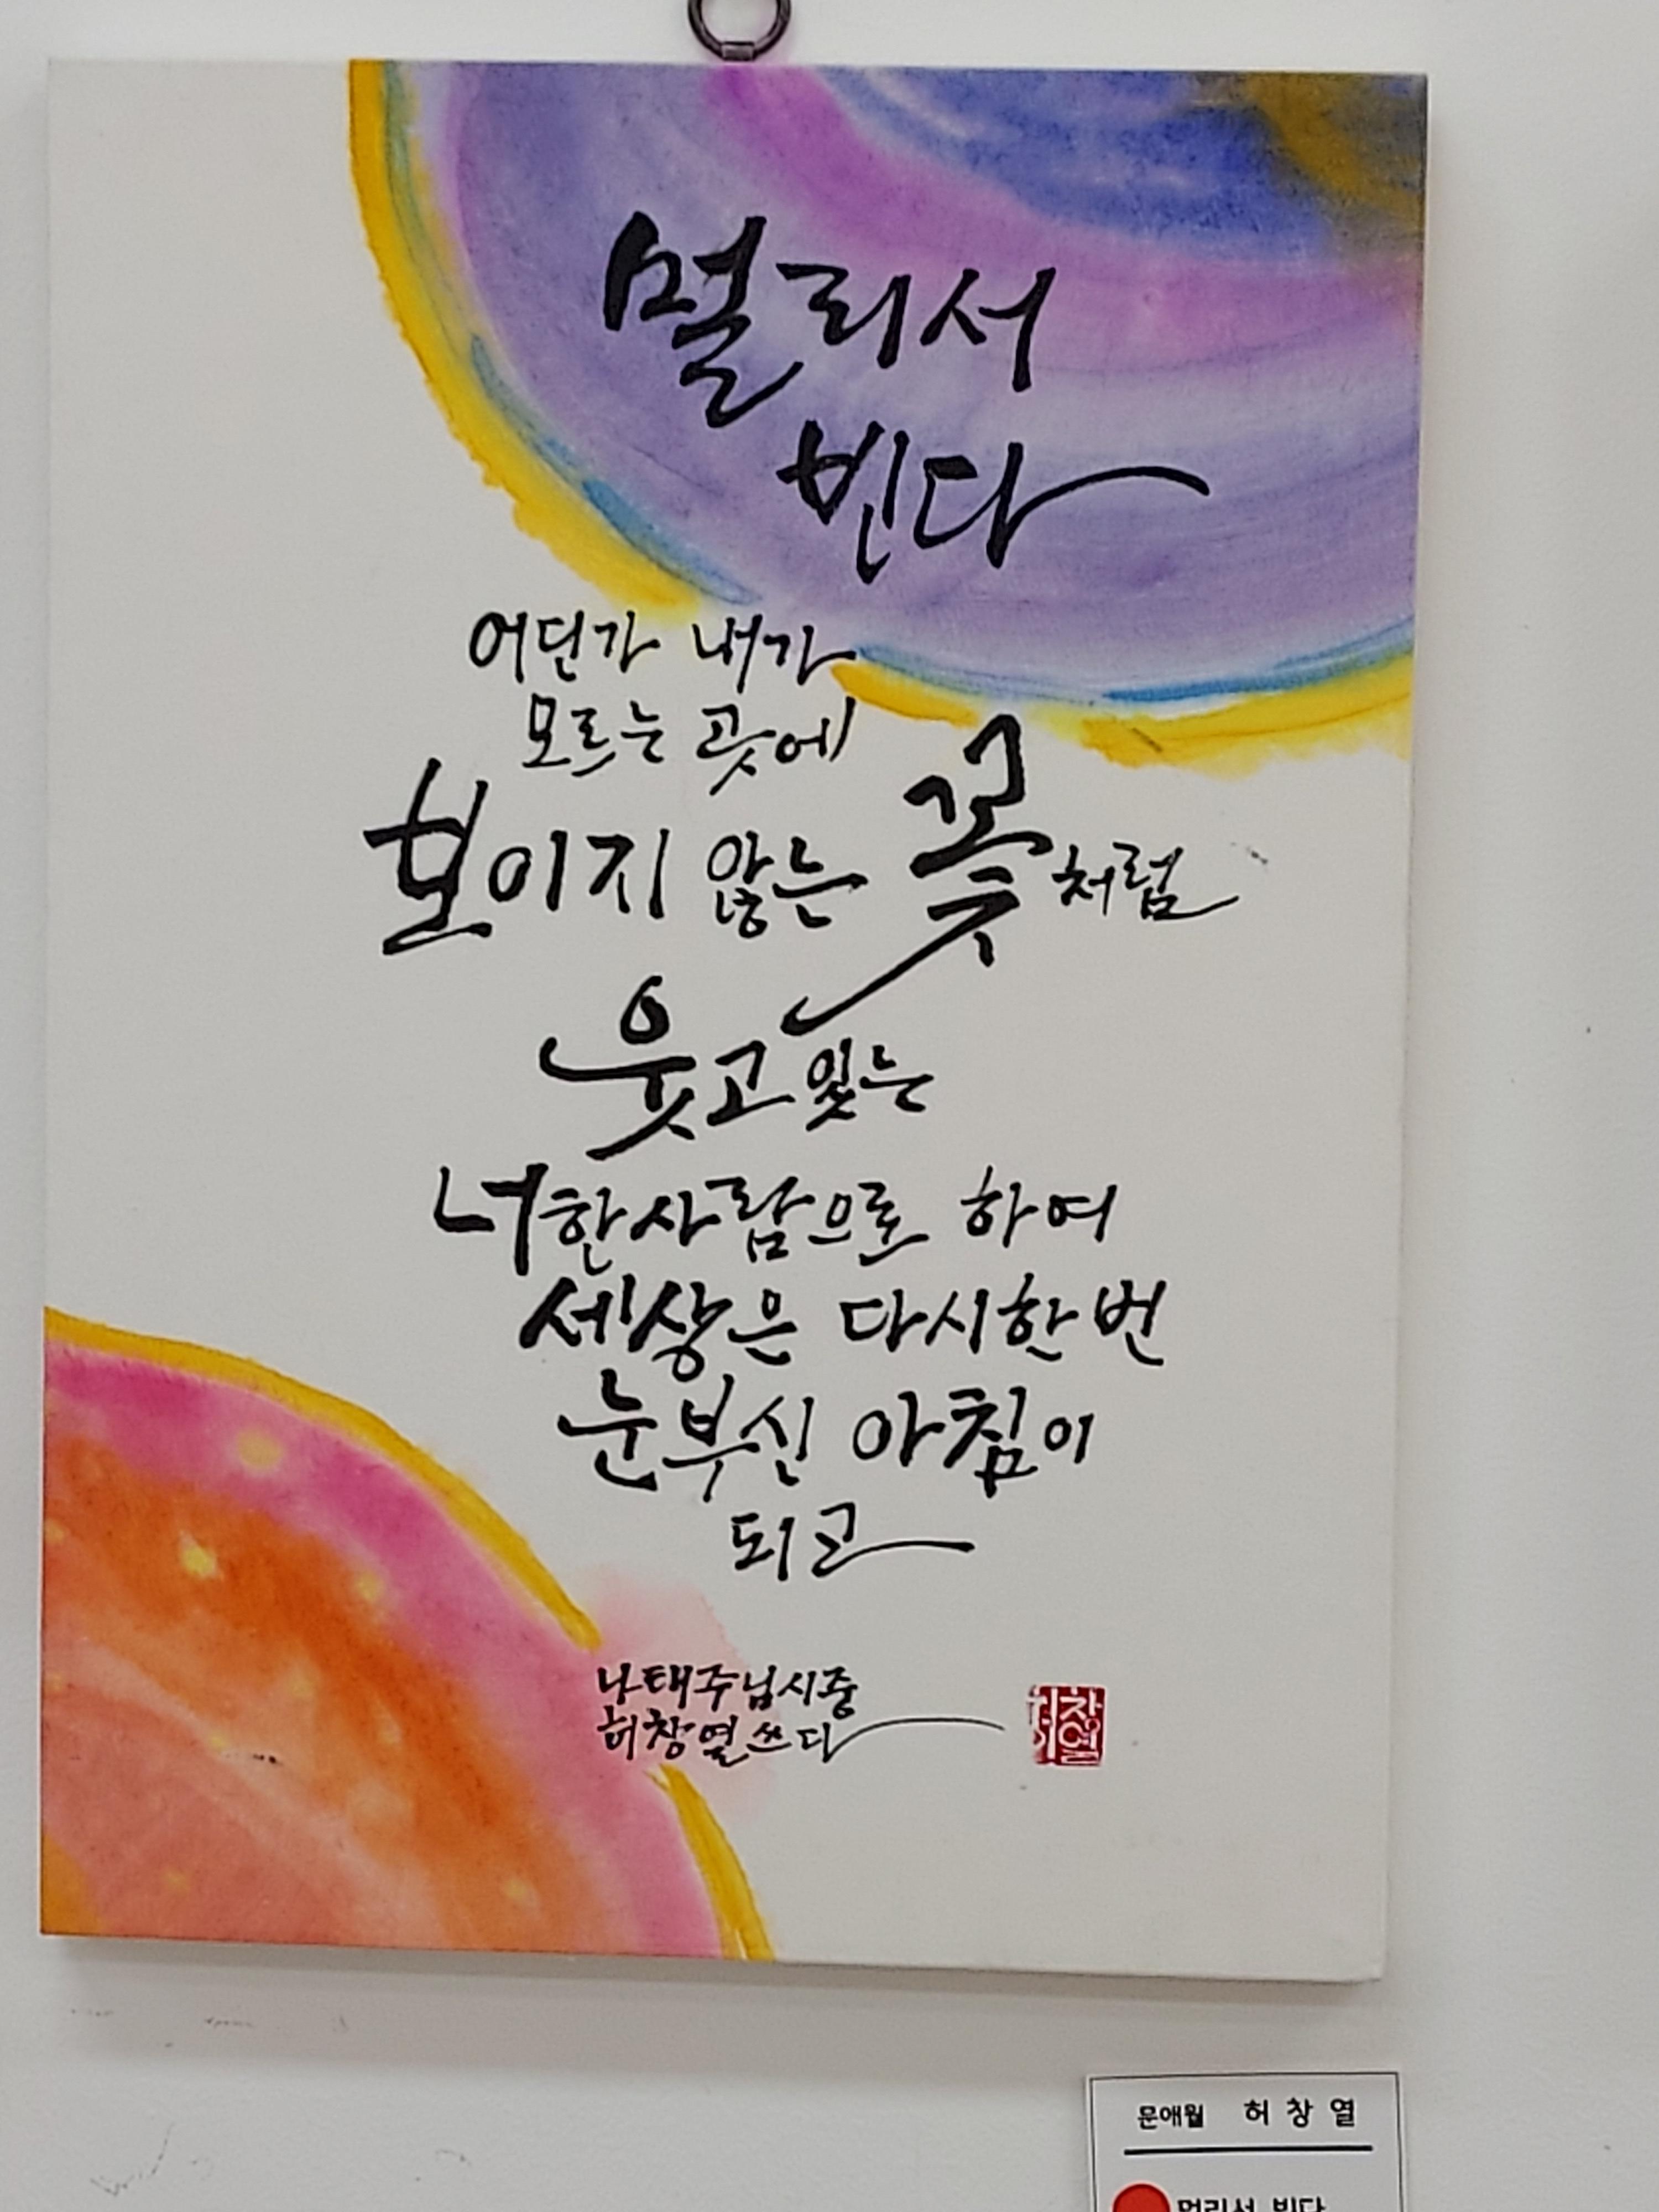 멀리서
빈다
어딘가 내가
모르는 곳에
보이지 않는 꽃처럼
웃고 있는
너 한사람으로 하여
세상은 다시한번
눈부신 아침이
되고
나태주님시중
허창열쓰다
허창열
문애월 허창열
멀리서 빈다